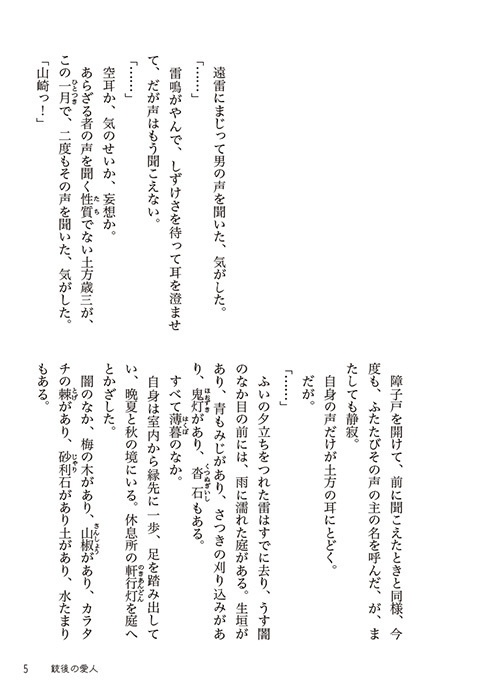 遠雷にまじって男の声を聞いた、気がした。
「……」
雷鳴がやんで、しずけさを待って耳を澄ませ
て、だが声はもう聞こえない。
「……」
空耳か、気のせいか、妄想か。
あらざる者の声を聞く性質でない土方歳三が、
この一月で、二度もその声を聞いた、気がした。
「山崎っ！」
障子戸を開けて、前に聞こえたときと同様、今
度も、ふたたびその声の主の名を呼んだ、が、ま
たしても静寂。
自身の声だけが土方の耳にとどく。
だが。
「……」
ふいの夕立ちをつれた雷はすでに去り、うす闇
のなか目の前には、雨に濡れた庭がある。生垣が
あり、青もみじがあり、さつきの刈り込みがあ
り、鬼灯があり、沓石もある。
すべて薄暮のなか。
自身は室内から縁先に一歩、足を踏み出して
い、晩夏と秋の境にいる。休息所の軒行灯を庭へ
とかざした。
闇のなか、梅の木があり、山椒があり、カラタ
チの棘があり、砂利石があり土があり、水たまり
もある。
5 銃後の愛人